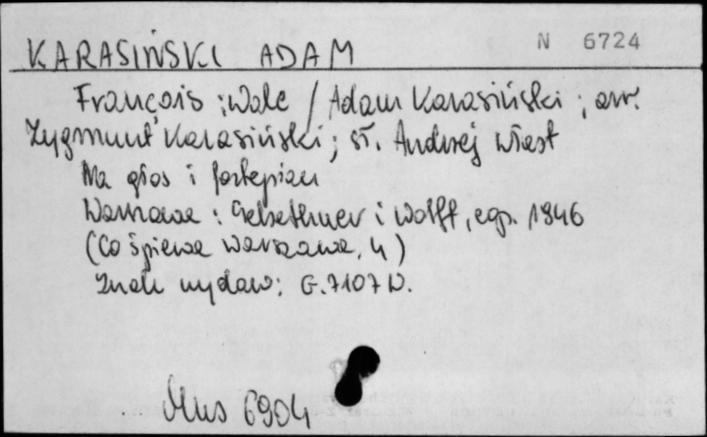 KARASIŃSKI ADAM
N 6724
François : Walc / Adam Karasiński ; arr.
Zygmunt Karasiński ; sł. Andrzej Włast
Na głos i fortepian
Warszawa : Gebethner i Wolff, cop. 1946
(Co śpiewa Warszawa, 4)
Znak wydaw: G.7107 W.
Mus 6904